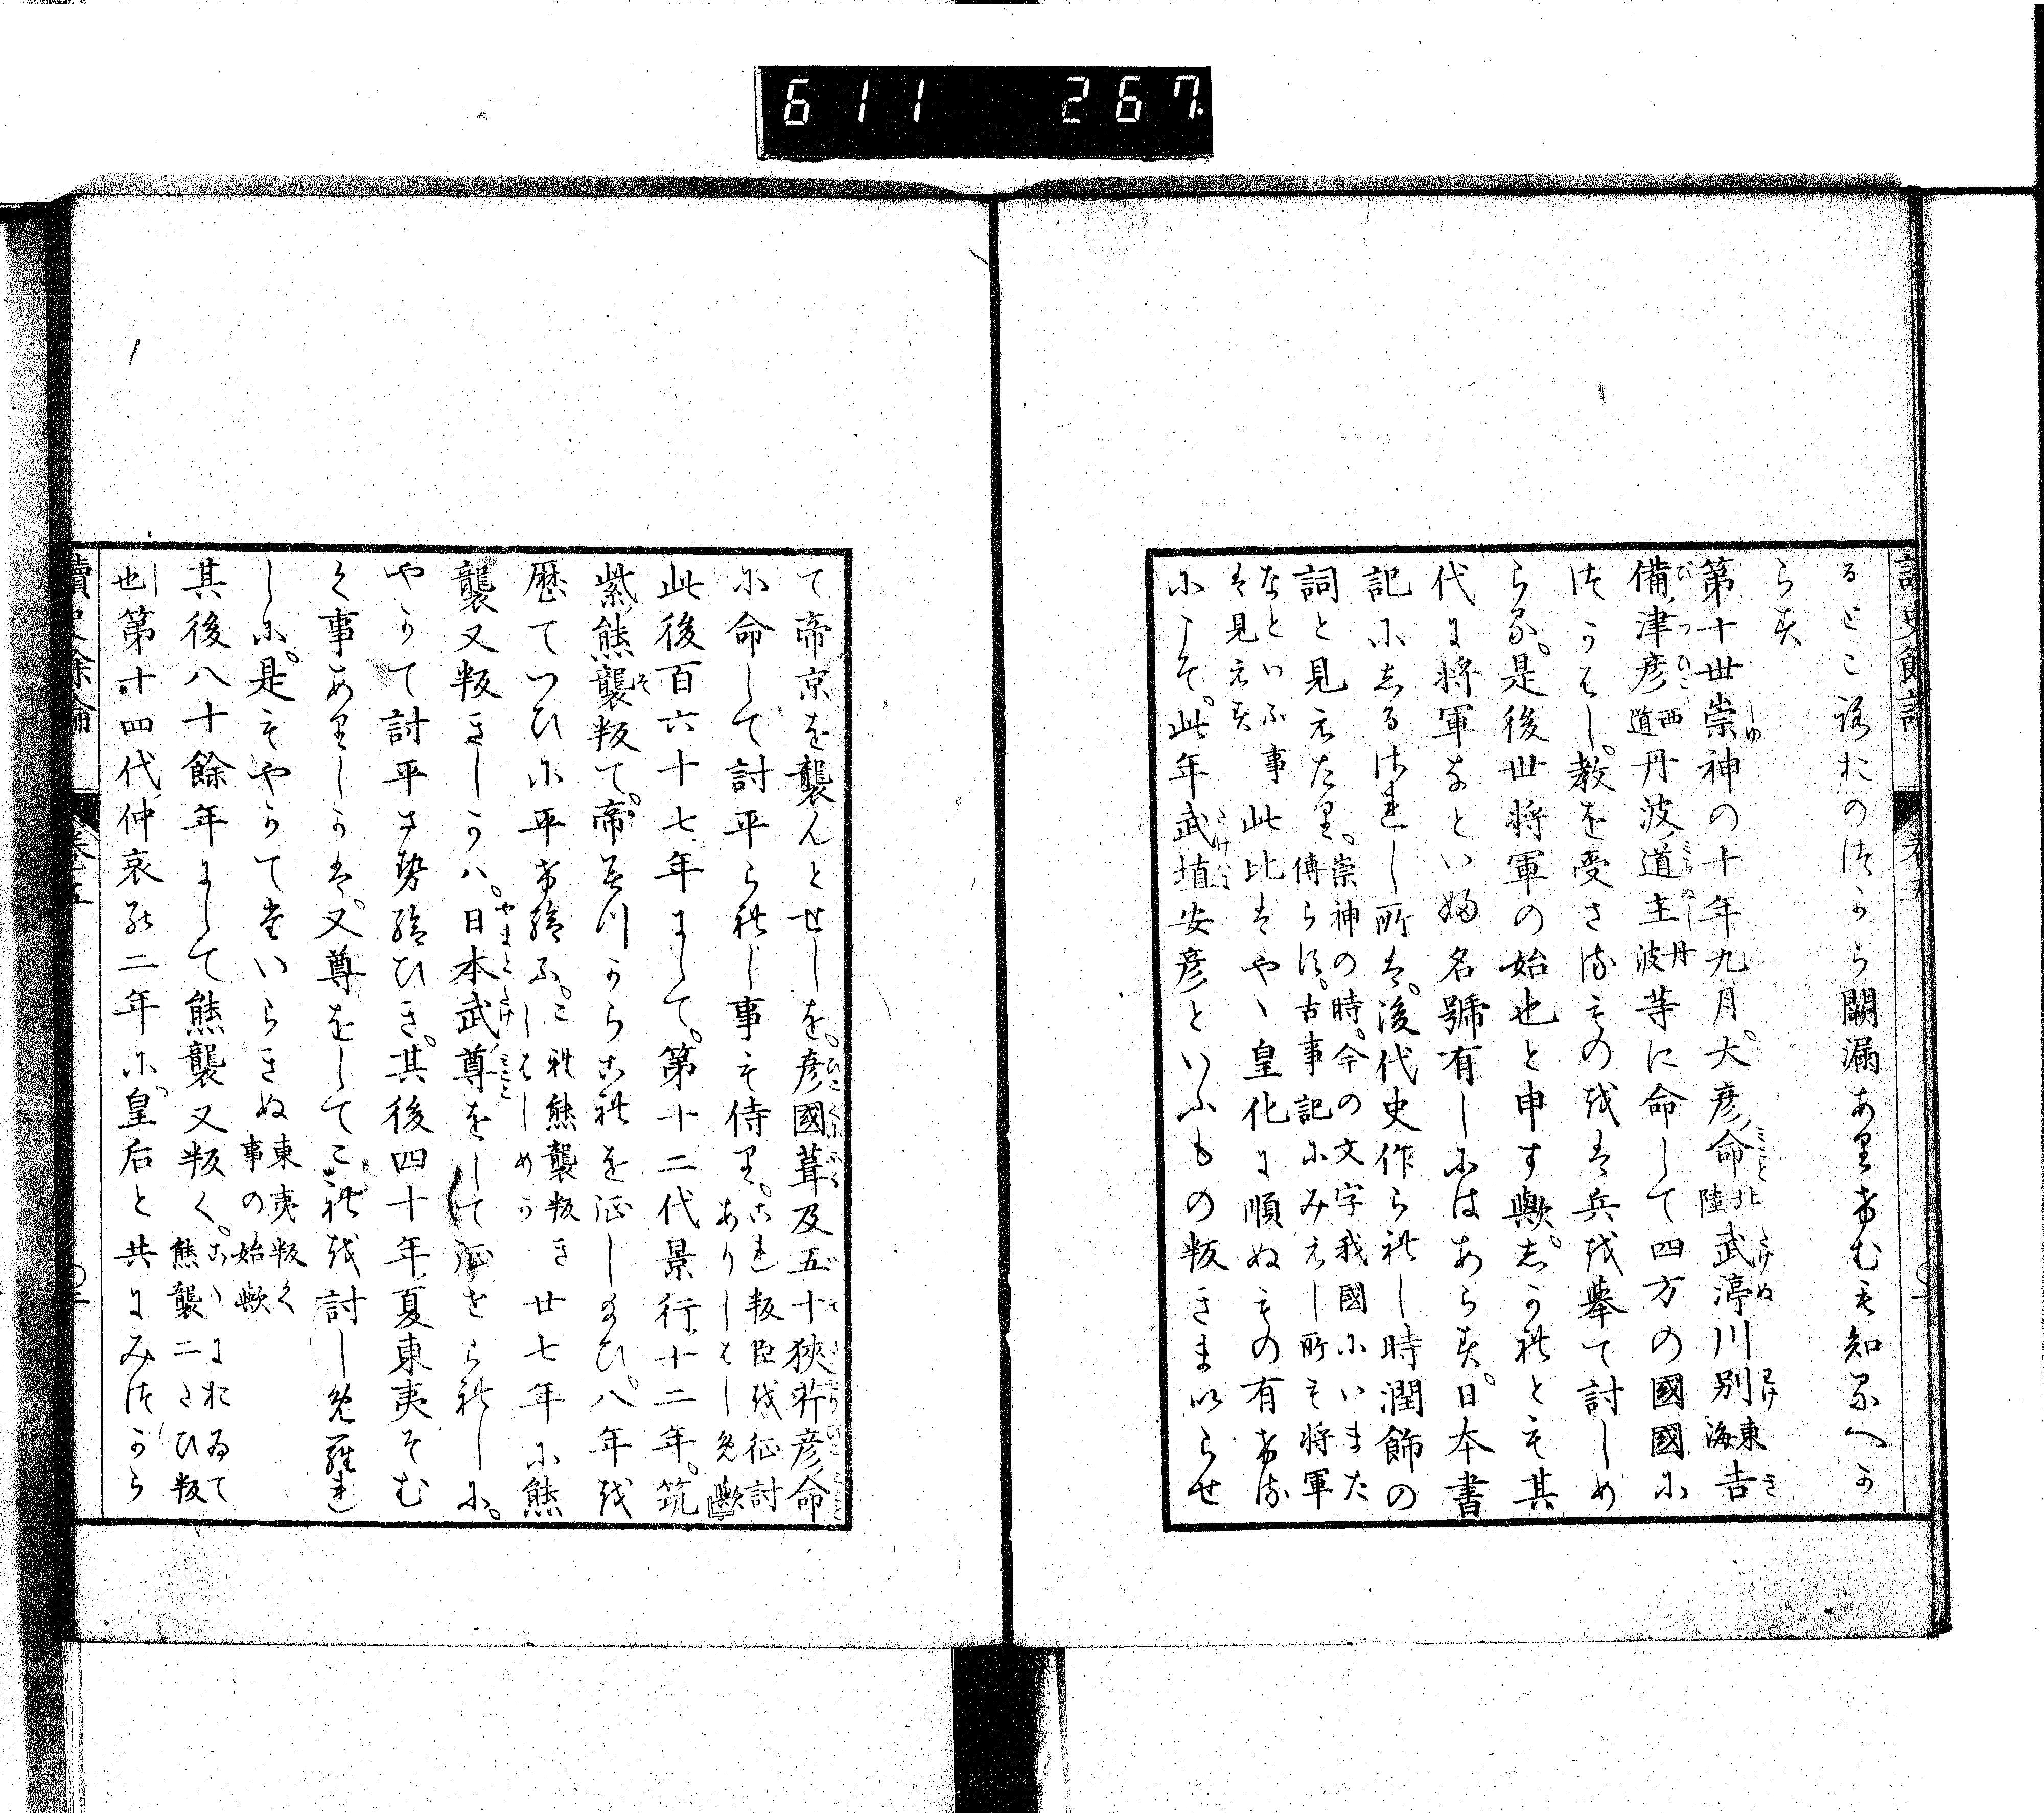 611 267
るところおのつから闕漏ありけむも知るへか
らす
第十世崇神の十年九月。大彦命北陸武渟川別東海吉
備津彦西道丹波道主丹波等に命して四方の國國に
つかはし。教を受さるものをは兵を擧て討しめ
らる。是後世将軍の始也と申す歟。しかれとも其
代に将軍なといふ名號有しにはあらす。日本書
記にしるされし所は。後代史作られし時潤飾の
詞と見えたり。崇神の時。今の文字我國にいまた
傳らす。古事記にみえし所も将軍
なといふ事
は見えす
此比はやゝ皇化に順ぬもの有ける
にこそ。此年武埴安彦といふもの叛きまいらせ
て帝京を襲んとせしを。彦國葺及五十狹芹彦命
に命して討平られし事も侍り。これ叛臣を征討
ありしはしめ歟
此後百六十七年にして。第十二代景行十二年。筑
紫熊襲叛て。帝みつからこれを征し給ひ。八年を
歴てつひに平け給ふ。これ熊襲叛き
しはしめか
廿七年に熊
襲又叛きしかハ。日本武尊をして征せられしに。
やかて討平させ給ひき。其後四十年夏東夷そむ
く事ありしかは。又尊をしてこれを討しめられ
しに。是もやかてたいらきぬ東夷叛く
事の始歟
其後八十餘年にして熊襲又叛く。こゝにおゐて
熊襲二たひ叛
し也
第十四代仲哀の二年に。皇后と共にみつから
讀史餘論 卷五